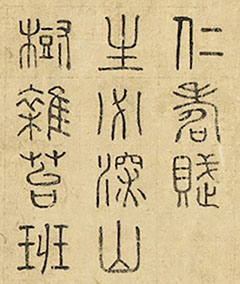 仁者
生 深山
樹雜苔班